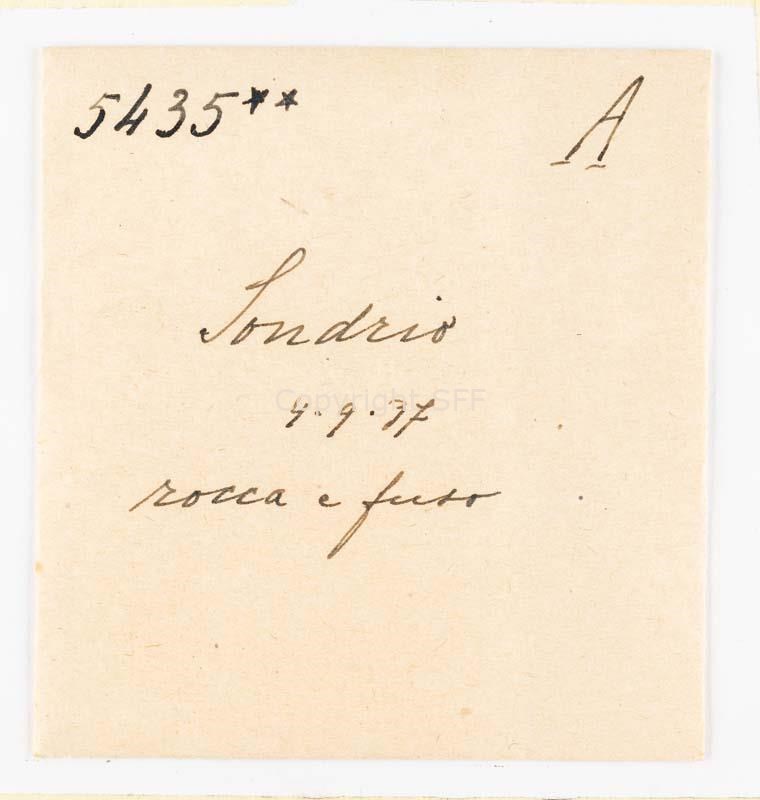 5435** A
Sondrio
Copyright SFF
4.9.37
rocca e fuso